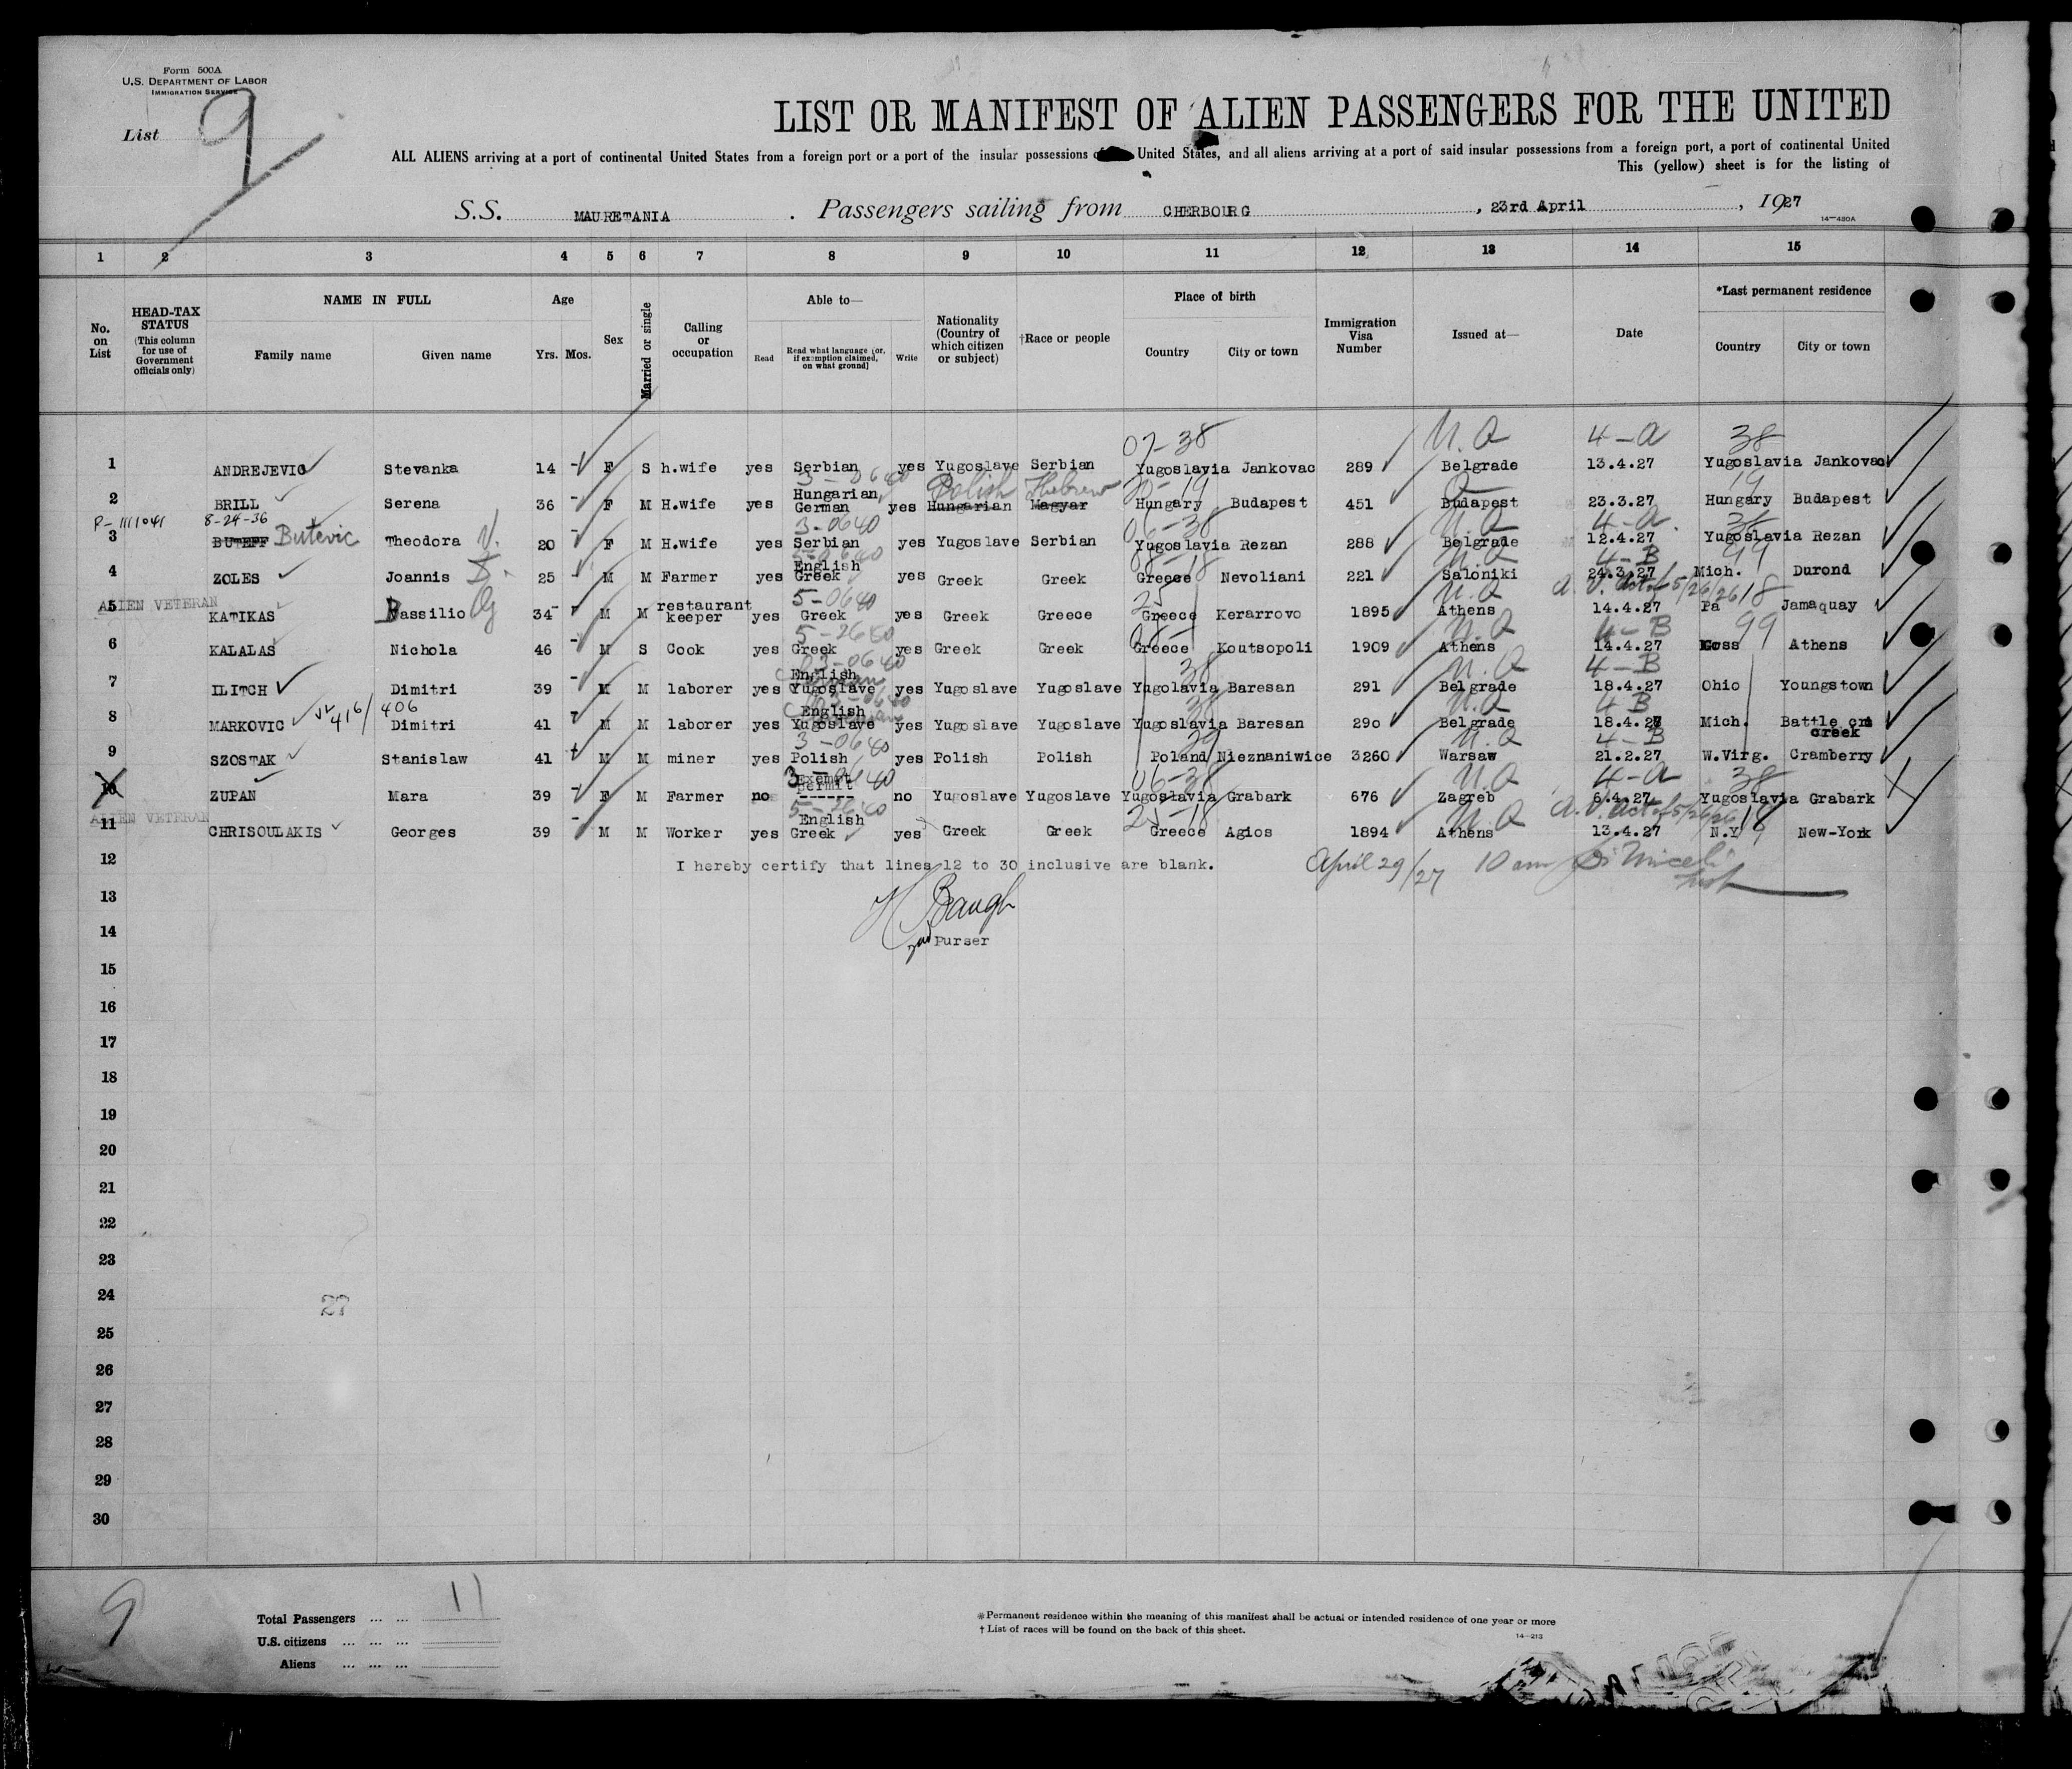 Form 500A
U.S. DEPARTMENT OF LABOR
IMMIGRATION SERVICE
List 9
LIST OR MANIFEST OF ALIEN PASSENGERS FOR THE UNITED
ALL ALIENS arriving at a port of continental United States from a foreign port or a port of the insular possessions United States, and all aliens arriving at a port of said insular possessions from a foreign port, a port of continental United
This (yellow) sheet is for the listing of
S.S. MAURETANIA . Passengers sailing from CHERBOURG , 23rd April , 1927
14—480A
1 2 3 4 5 6 7 8 9 10 11 12 13 14 15
No. on List
HEAD-TAX STATUS (This column for use of Government officials only)
NAME IN FULL Family name Given name
Age Yrs. Mos.
Sex
Married or single
Calling or occupation
Able to— Read Read what language (or, if exemption claimed, on what ground) Write
Nationality (Country of which citizen or subject)
†Race or people
Place of birth Country City or town
Immigration Visa Number
Issued at—
Date
*Last permanent residence Country City or town
07-38 N.Q 4-a 38
1 ANDREJEVIC Stevanka 14 - F S h.wife yes Serbian yes Yugoslave Serbian Yugoslavia Jankovac 289 Belgrade 13.4.27 Yugoslavia Jankovac
3-0640 Polish Hebrew 19
2 BRILL Serena 36 - F M H.wife yes Hungarian German yes Hungarian Magyar Hungary Budapest 451 Budapest 23.3.27 Hungary Budapest
R-1111041 8-24-36 3-0640 06-38 N.Q 4-a 38
3 BUTEFF Butevic Theodora V. 20 - F M H.wife yes Serbian yes Yugoslave Serbian Yugoslavia Rezan 288 Belgrade 12.4.27 Yugoslavia Rezan
5-0640 08-18 N.Q 4-B 99
4 ZOLES Joannis 25 - M M Farmer yes English Greek yes Greek Greek Greece Nevoliani 221 Saloniki 24.3.27 Mich. Durond
5-0640 25 N.Q A.V. Act of 5/26/26 18
ALIEN VETERAN
5 KATIKAS Bassilio 34 - M M restaurant keeper yes Greek yes Greek Greece Greece Kerarrovo 1895 Athens 14.4.27 Pa Jamaquay
5-2660 N.Q 4-B 99
6 KALALAS Nichola 46 - M S Cook yes Greek yes Greek Greek Greece Koutsopoli 1909 Athens 14.4.27 Athens
03-0640 38 N.Q 4-B
7 ILITCH Dimitri 39 - M M laborer yes English Yugoslave yes Yugoslave Yugoslave Yugolavia Baresan 291 Belgrade 18.4.27 Ohio Youngstown
416/406 38 N.Q 4B
8 MARKOVIC Dimitri 41 M M laborer yes English Yugoslave yes Yugoslave Yugoslave Yugoslavia Baresan 290 Belgrade 18.4.27 Mich. Battle creek
3-0640 29 N.Q 4-B
9 SZOSTAK Stanislaw 41 M M miner yes Polish yes Polish Polish Poland Nieznaniwice 3260 Warsaw 21.2.27 W.Virg. Cramberry
06-38 N.Q 4-a 38
10 ZUPAN Mara 39 - F M Farmer no Exempt Permit ------ no Yugoslave Yugoslave Yugoslavia Grabark 676 Zagreb 6.4.27 Yugoslavia Grabark
ALIEN VETERAN
5-2640 25-18 N.Q A.V. Act of 5/26/26 18
11 CHRISOULAKIS Georges 39 - M M Worker yes English Greek yes Greek Greek Greece Agios 1894 Athens 13.4.27 N.Y New-York
12 I hereby certify that lines 12 to 30 inclusive are blank. April 29/27 10 am
13
H Baugh
14 2nd Purser
15
16
17
18
19
20
21
22
23
24
27
25
26
27
28
29
30
9
Total Passengers ... ... 11
U.S. citizens ... ... ...
Aliens ... ... ...
*Permanent residence within the meaning of this manifest shall be actual or intended residence of one year or more
† List of races will be found on the back of this sheet.
14—213